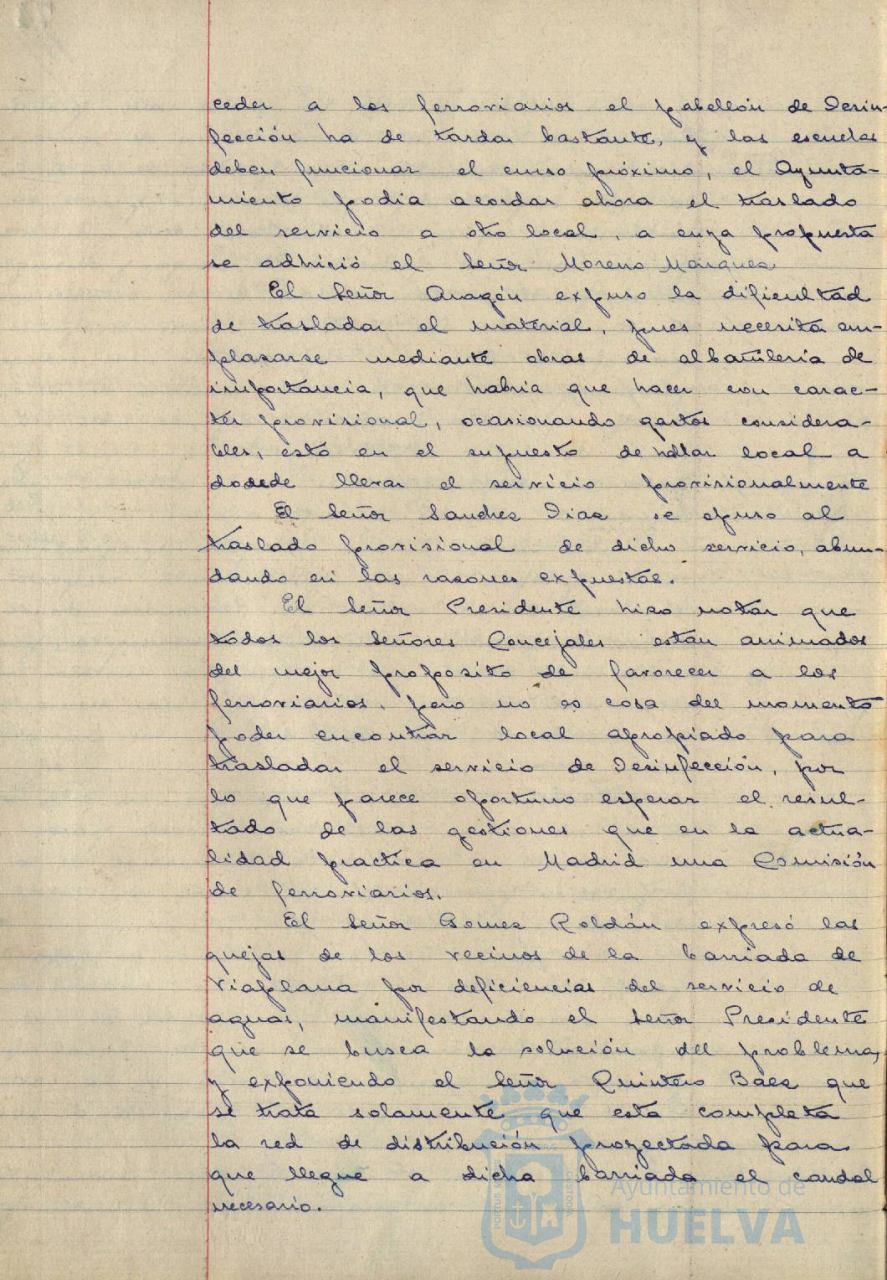 ceder a los ferroviarios el pabellón de Desin-
fección ha de tardar bastante, y las escuelas
deben funcionar el curso próximo, el Ayunta-
miento podia acordar ahora el traslado
del servicio a otro local, a cuya propuesta
se adhirió el Señor Moreno Márquez
El Señor Aragón expuso la dificultad
de trasladar el material, pues necesita em-
plazarse mediante obras de albañileria de
importancia, que habria que hacer con carac-
ter provisional, ocasionando gastos considera-
bles, esto en el supuesto de hallar local a
dodede llevar el servicio provisionalmente
El Señor Sanchez Diaz se opuso al
traslado provisional de dicho servicio, abun-
dando en las razones expuestas.
El Señor Presidente hizo notar que
todos los Señores Concejales están animados
del mejor proposito de favorecer a los
ferroviarios, pero no es cosa del momento
poder encontrar local apropiado para
trasladar el servicio de Desinfección, por
lo que parece oportuno esperar el resul-
tado de las gestiones que en la actua-
lidad practica en Madrid una Comisión
de ferroviarios.
El Señor Gomez Roldán expresó las
quejas de los vecinos de la barriada de
Viaplana por deficiencias del servicio de
aguas, manifestando el Señor Presidente
que se busca la solución del problema,
y exponiendo el Señor Quintero Baez que
se trata solamente que esta completa
la red de distribución proyectada para
que llegue a dicha barriada el caudal
necesario.
Ayuntamiento de
HUELVA